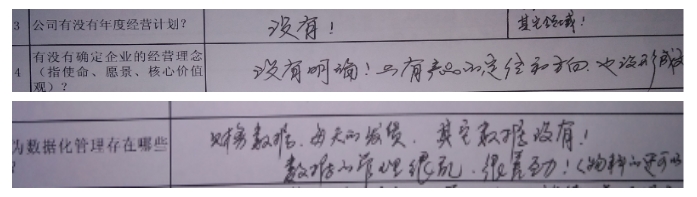 3 公司有没有年度经营计划？ 没有！ 其它领域！
有没有确定企业的经营理念
4 （指使命、愿景、核心价值 没有明确！只有产品的定位和方向，也没形成
观）？
财务数据，每天的发货，其它数据没有！
为数据化管理存在哪些
数据的管理很乱，很差劲！（物料的还可以